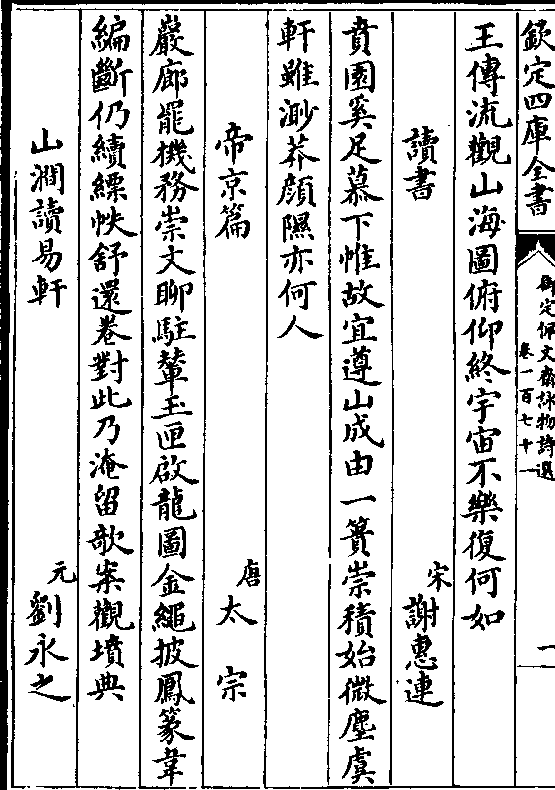 欽定四庫全書
御定佩文齋詠物詩選
卷一百七十一
一
王傳流觀山海圖俯仰終宇宙不樂復何如
讀書
宋
謝惠連
賁園奚足慕下帷故宜遵山成由一簣崇積始微塵虞
軒雖渺莽顔隰亦何人
帝京篇
唐
太宗
巖廊罷機務崇文聊駐輦玉匣啟龍圖金繩披鳳篆韋
編斷仍續縹帙舒還卷對此乃淹留欹案觀墳典
山澗讀易軒
元
劉永之